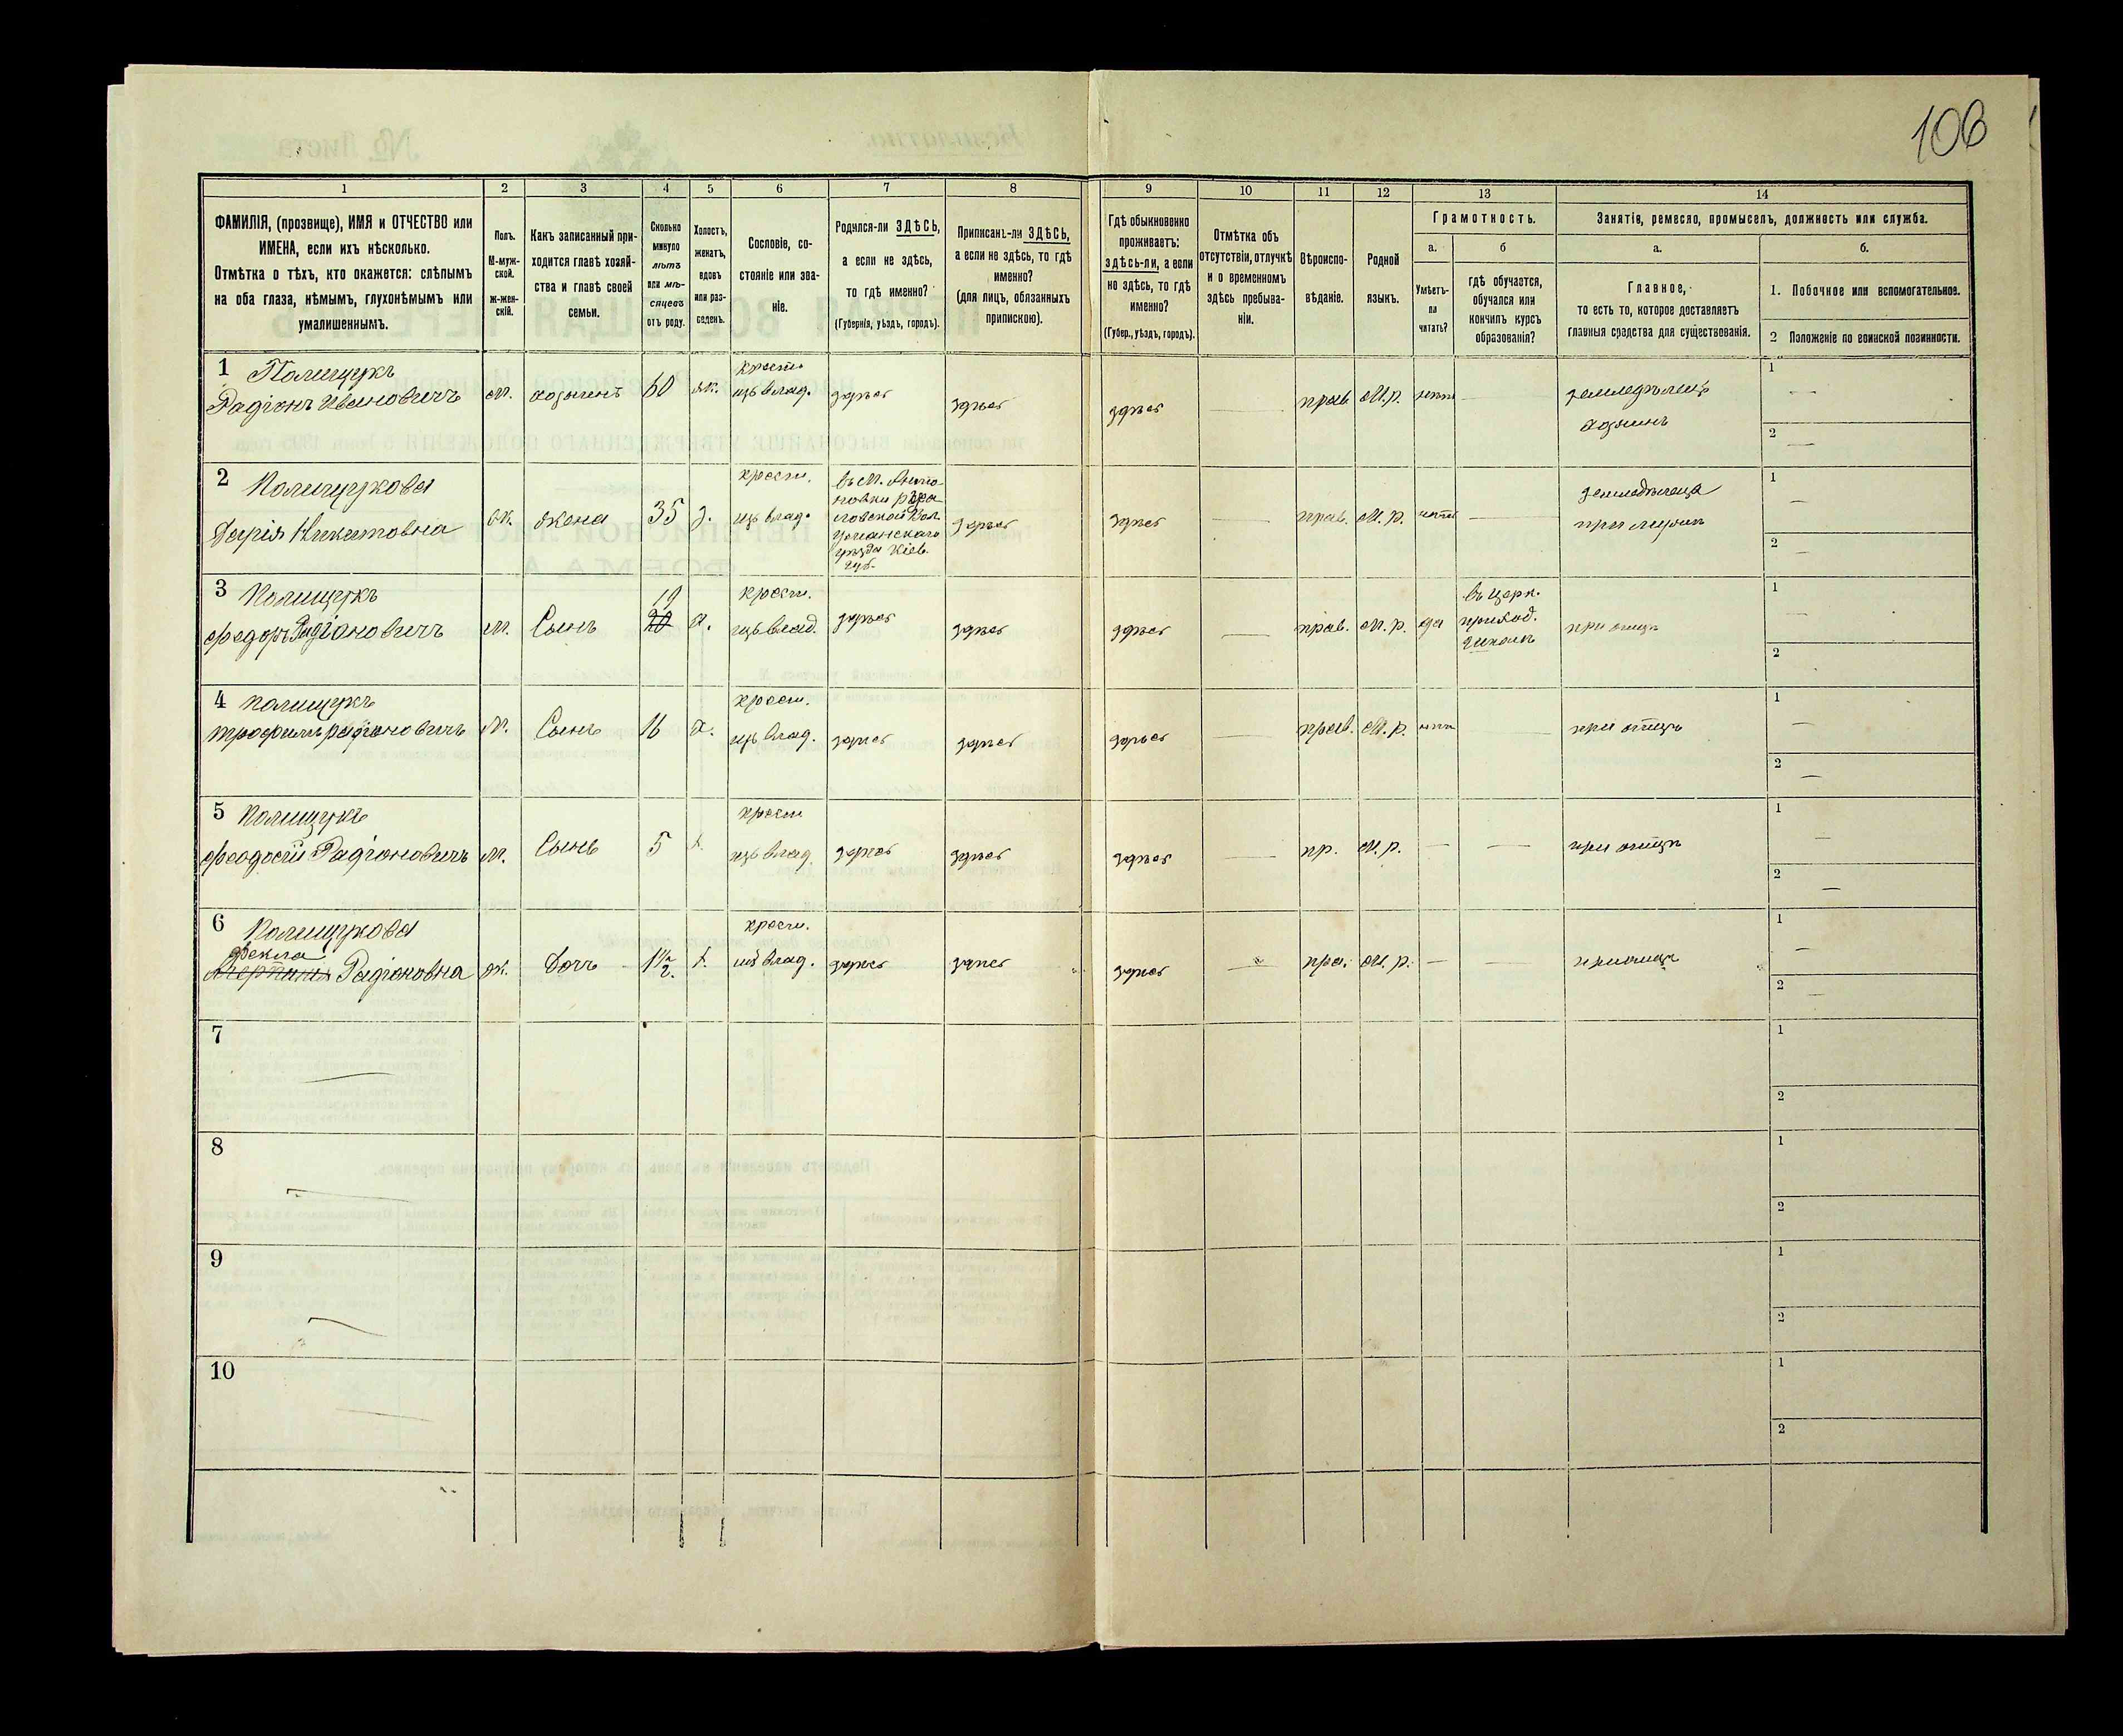 106
1 2 3 4 5 6 7 8 9 10 11 12 13 14
ФАМИЛІЯ, (прозвище), ИМЯ и ОТЧЕСТВО или
ИМЕНА, если ихъ нѣсколько.
Отмѣтка о тѣхъ, кто окажется: слѣпымъ
на оба глаза, нѣмымъ, глухонѣмымъ или
умалишеннымъ.
Полъ.
М-муж-
ской.
ж-жен-
скій.
Какъ записанный при-
ходится главѣ хозяй-
ства и главѣ своей
семьи.
Сколько
минуло
лѣтъ
или мѣ-
сяцевъ
отъ роду.
Холостъ,
женатъ,
вдовъ
или раз-
веденъ.
Сословіе, со-
стояніе или зва-
ніе.
Родился-ли ЗДѢСЬ,
а если не здѣсь,
то гдѣ именно?
(Губернія, уѣздъ, городъ).
Приписанъ-ли ЗДѢСЬ,
а если не здѣсь, то гдѣ
именно?
(для лицъ, обязанныхъ
припискою).
Гдѣ обыкновенно
проживаетъ:
здѣсь-ли, а если
не здѣсь, то гдѣ
именно?
(Губер., уѣздъ, городъ).
Отмѣтка объ
отсутствіи, отлучкѣ
и о временномъ
здѣсь пребыва-
ніи.
Вѣроиспо-
вѣданіе.
Родной
языкъ.
Грамотность.
а.
Умѣетъ-
ли
читать?
б
гдѣ обучается,
обучался или
кончилъ курсъ
образованія?
Занятіе, ремесло, промыселъ, должность или служба.
а.
Главное,
то есть то, которое доставляетъ
главныя средства для существованія.
б.
1. Побочное или вспомогательное.
2 Положеніе по воинской повинности.
1 Полищукъ
Радіонъ Ивановичъ
м. хозяинъ 60 ж.
крест.
изъ влад.
здѣсь здѣсь здѣсь — прав. М.р. нѣтъ —
земледѣлецъ
хозяинъ
1 —
2 —
2 Полищукова
Дарія Никитовна
ж. жена 35 з.
крест.
изъ влад.
уѣзда Кіев.
губ.
здѣсь здѣсь — прав. М. р. нѣтъ —
1 —
2 —
3 Полищукъ
Федоръ Радіоновичъ
м. Сынъ
19
20
х.
крест.
изъ влад.
здѣсь здѣсь здѣсь — прав. М. р. да
въ церк.
приход.
школѣ
при отцѣ
1 —
2
4 Полищукъ
Трофимъ Радіоновичъ
м. Сынъ 11 х.
крест.
изъ влад.
здѣсь здѣсь здѣсь — прав. М. р. нѣтъ —
при отцѣ
1 —
2 —
5 Полищукъ
Феодосій Радіоновичъ
м. Сынъ 5 х.
крест
изъ влад.
здѣсь здѣсь здѣсь — пр. М. р. — —
при отцѣ
1 —
2 —
6 Полищукова
Фекла
Радіоновна
ж. Дочь 1½ х.
крест.
изъ влад.
здѣсь здѣсь здѣсь — пра. М. р. — —
при отцѣ
1 —
2 —
7 —
1
2
8 —
1
2
9 —
1
2
10 —
1
2